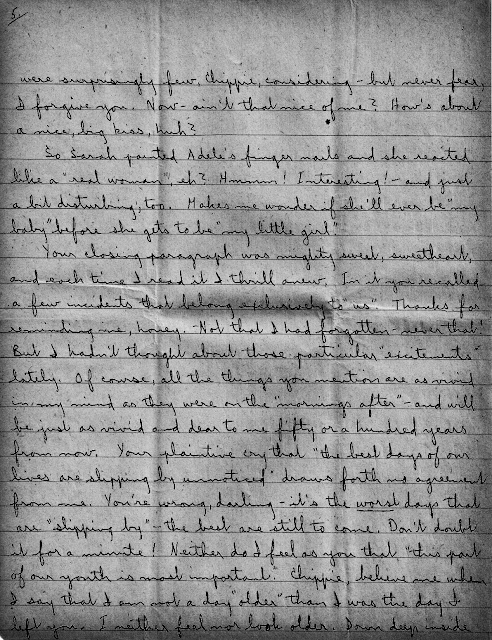 5.
were surprisingly few, Chippie, considering - but never fear,
I forgive you. Now - ain't that nice of me? How's about
a nice, big kiss, huh?
So Sarah painted Adele's finger nails and she reacted
like a "real woman", eh? Hmmm! Interesting! - and just
a bit disturbing, too. Makes me wonder if she'll ever be "my
baby" before she gets to be "my little girl"
Your closing paragraph was mighty sweet, sweetheart,
and each time I read it I thrill anew. In it you recalled
a few incidents that belong exclusively to "us". Thanks for
reminding me, honey. Not that I had forgotten - never that!
But I hadn't thought about those particular "excitements"
lately. Of course, all the things you mention are as vivid
in my mind as they were on the "mornings after" - and will
be just as vivid and dear to me fifty or a hundred years
from now. Your plaintive cry that "the best days of our
lives are slipping by unnoticed" draws forth no agreement
from me. You're wrong, darling - it's the worst days that
are "slipping by" - the best are still to come. Don't doubt
it for a minute! Neither do I feel as you that "this part
of our youth is most important. Chippie, believe me when
I say that I am not a day "older" than I was the day I
left you. I neither feel nor look older. Down deep inside